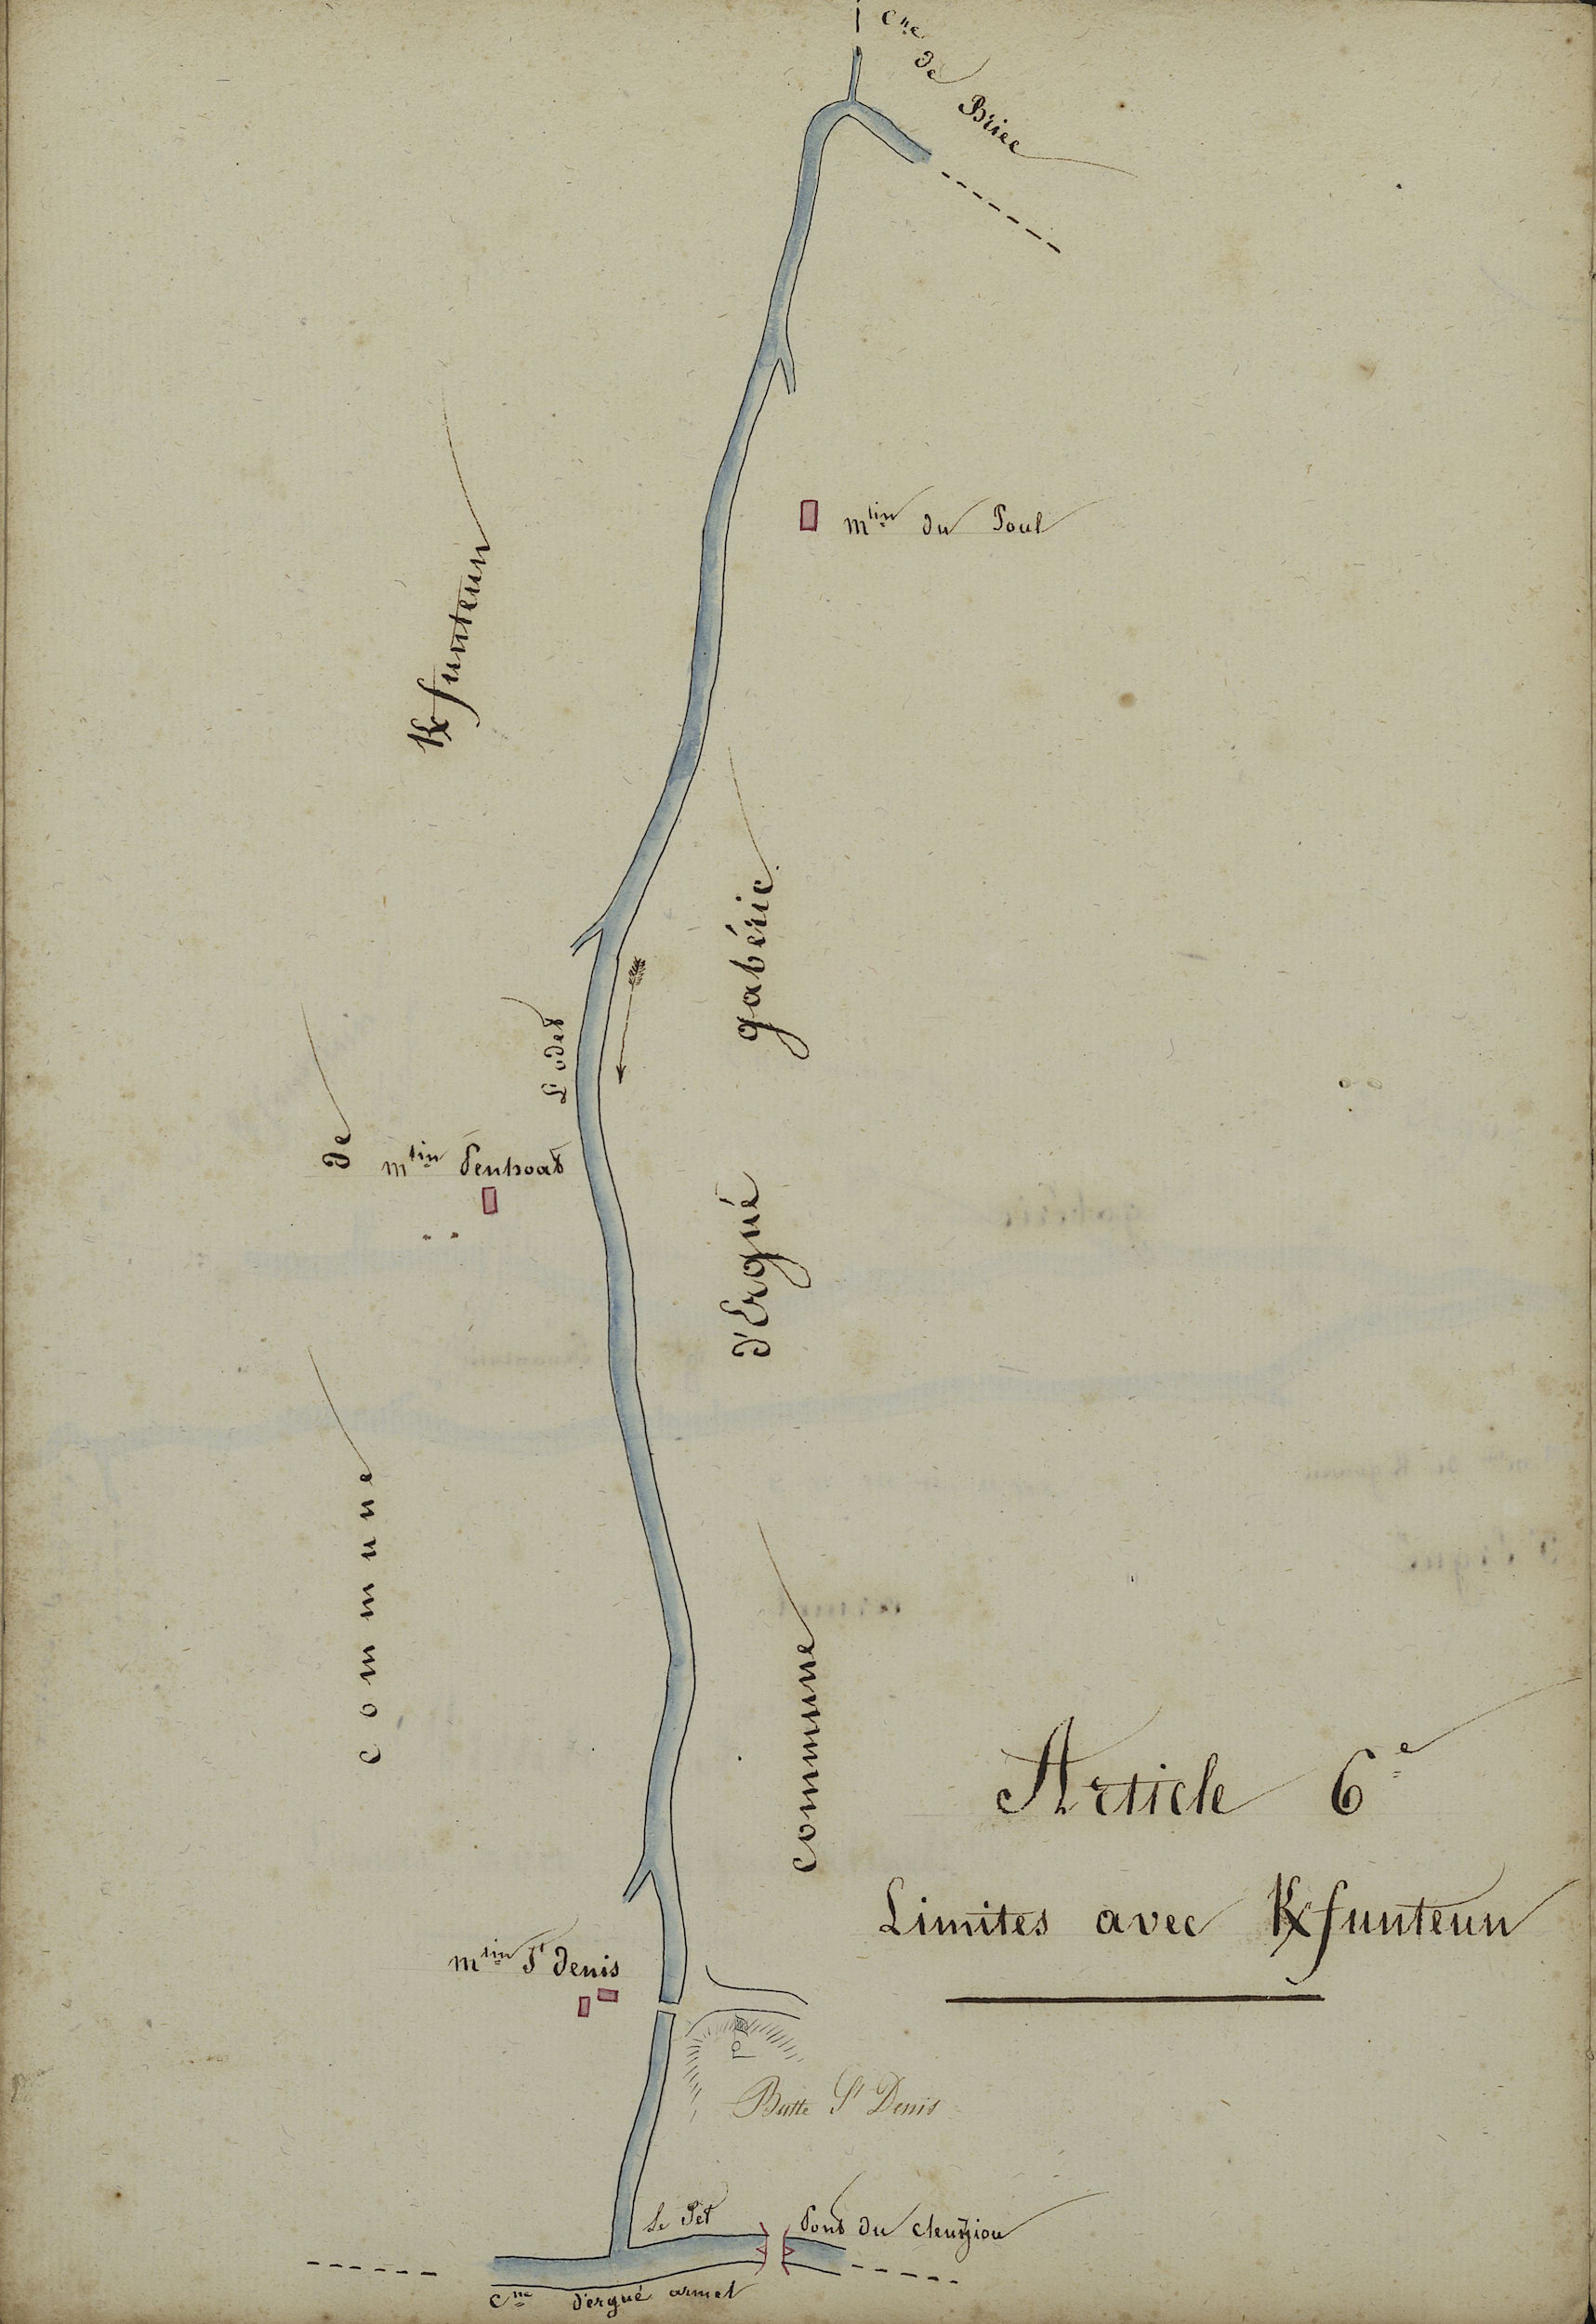 cne de Briec
mtin du Poul
Kfunteun
gabéric
L'odet
de
mtin Penhoat
d'Ergué
commune
commune
Article 6e
Limites avec Kfunteun
mtin St denis
Butte St Denis
Le Jet
Pont du cleuziou
cne d'ergué armel